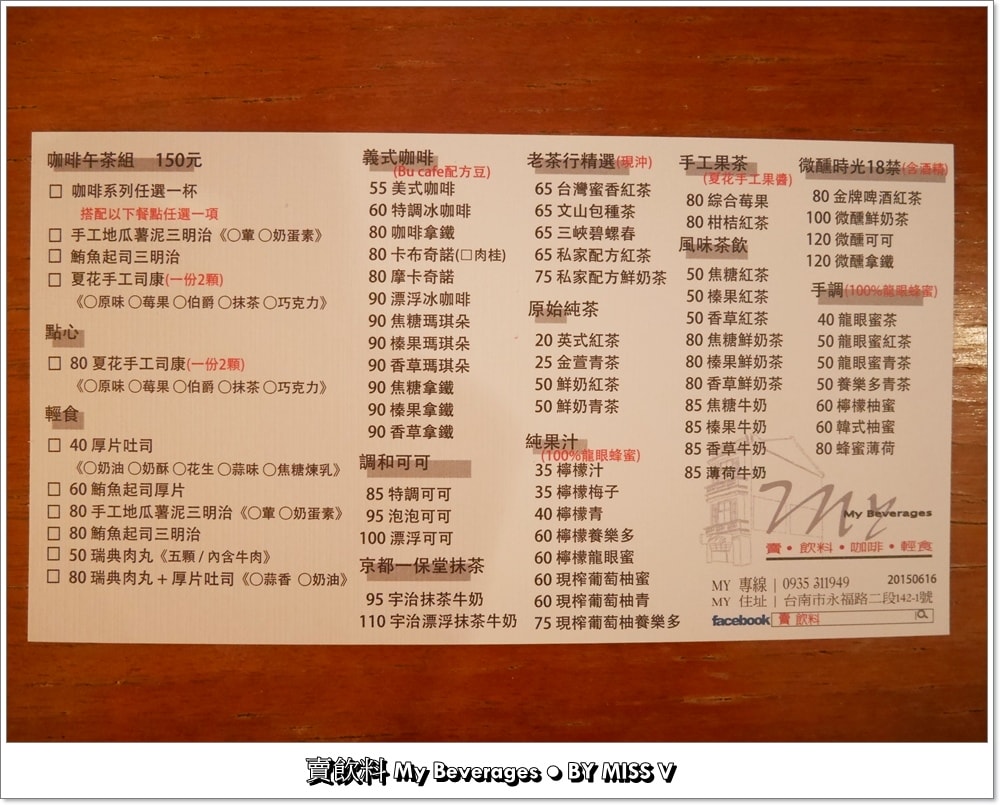 咖啡午茶組 150元
□ 咖啡系列任選一杯
搭配以下餐點任選一項
□ 手工地瓜薯泥三明治《○葷 ○奶蛋素》
□ 鮪魚起司三明治
□ 夏花手工司康(一份2顆)
《○原味 ○莓果 ○伯爵 ○抹茶 ○巧克力》
點心
□ 80 夏花手工司康(一份2顆)
《○原味 ○莓果 ○伯爵 ○抹茶 ○巧克力》
輕食
□ 40 厚片吐司
《○奶油 ○奶酥 ○花生 ○蒜味 ○焦糖煉乳》
□ 60 鮪魚起司厚片
□ 80 手工地瓜薯泥三明治《○葷 ○奶蛋素》
□ 80 鮪魚起司三明治
□ 50 瑞典肉丸《五顆 / 內含牛肉》
□ 80 瑞典肉丸 + 厚片吐司《○蒜香 ○奶油》
義式咖啡
(Bu cafe配方豆)
55 美式咖啡
60 特調冰咖啡
80 咖啡拿鐵
80 卡布奇諾(□肉桂)
80 摩卡奇諾
90 漂浮冰咖啡
90 焦糖瑪琪朵
90 榛果瑪琪朵
90 香草瑪琪朵
90 焦糖拿鐵
90 榛果拿鐵
90 香草拿鐵
調和可可
85 特調可可
95 泡泡可可
100 漂浮可可
京都一保堂抹茶
95 宇治抹茶牛奶
110 宇治漂浮抹茶牛奶
老茶行精選(現沖)
65 台灣蜜香紅茶
65 文山包種茶
65 三峽碧螺春
65 私家配方紅茶
75 私家配方鮮奶茶
原始純茶
20 英式紅茶
25 金萱青茶
50 鮮奶紅茶
50 鮮奶青茶
純果汁
(100%龍眼蜂蜜)
35 檸檬汁
35 檸檬梅子
40 檸檬青
60 檸檬養樂多
60 檸檬龍眼蜜
60 現榨葡萄柚蜜
60 現榨葡萄柚青
75 現榨葡萄柚養樂多
手工果茶
(夏花手工果醬)
80 綜合莓果
80 柑桔紅茶
風味茶飲
50 焦糖紅茶
50 榛果紅茶
50 香草紅茶
80 焦糖鮮奶茶
80 榛果鮮奶茶
80 香草鮮奶茶
85 焦糖牛奶
85 榛果牛奶
85 香草牛奶
85 薄荷牛奶
微醺時光18禁(含酒精)
80 金牌啤酒紅茶
100 微醺鮮奶茶
120 微醺可可
120 微醺拿鐵
手調(100%龍眼蜂蜜)
40 龍眼蜜茶
50 龍眼蜜紅茶
50 龍眼蜜青茶
50 養樂多青茶
60 檸檬柚蜜
60 韓式柚蜜
80 蜂蜜薄荷
My
My Beverages
賣・飲料・咖啡・輕食
MY 專線 | 0935 311949 20150616
MY 住址 | 台南市永福路二段142-1號
facebook 賣 飲料
賣飲料 My Beverages ● BY MISS V